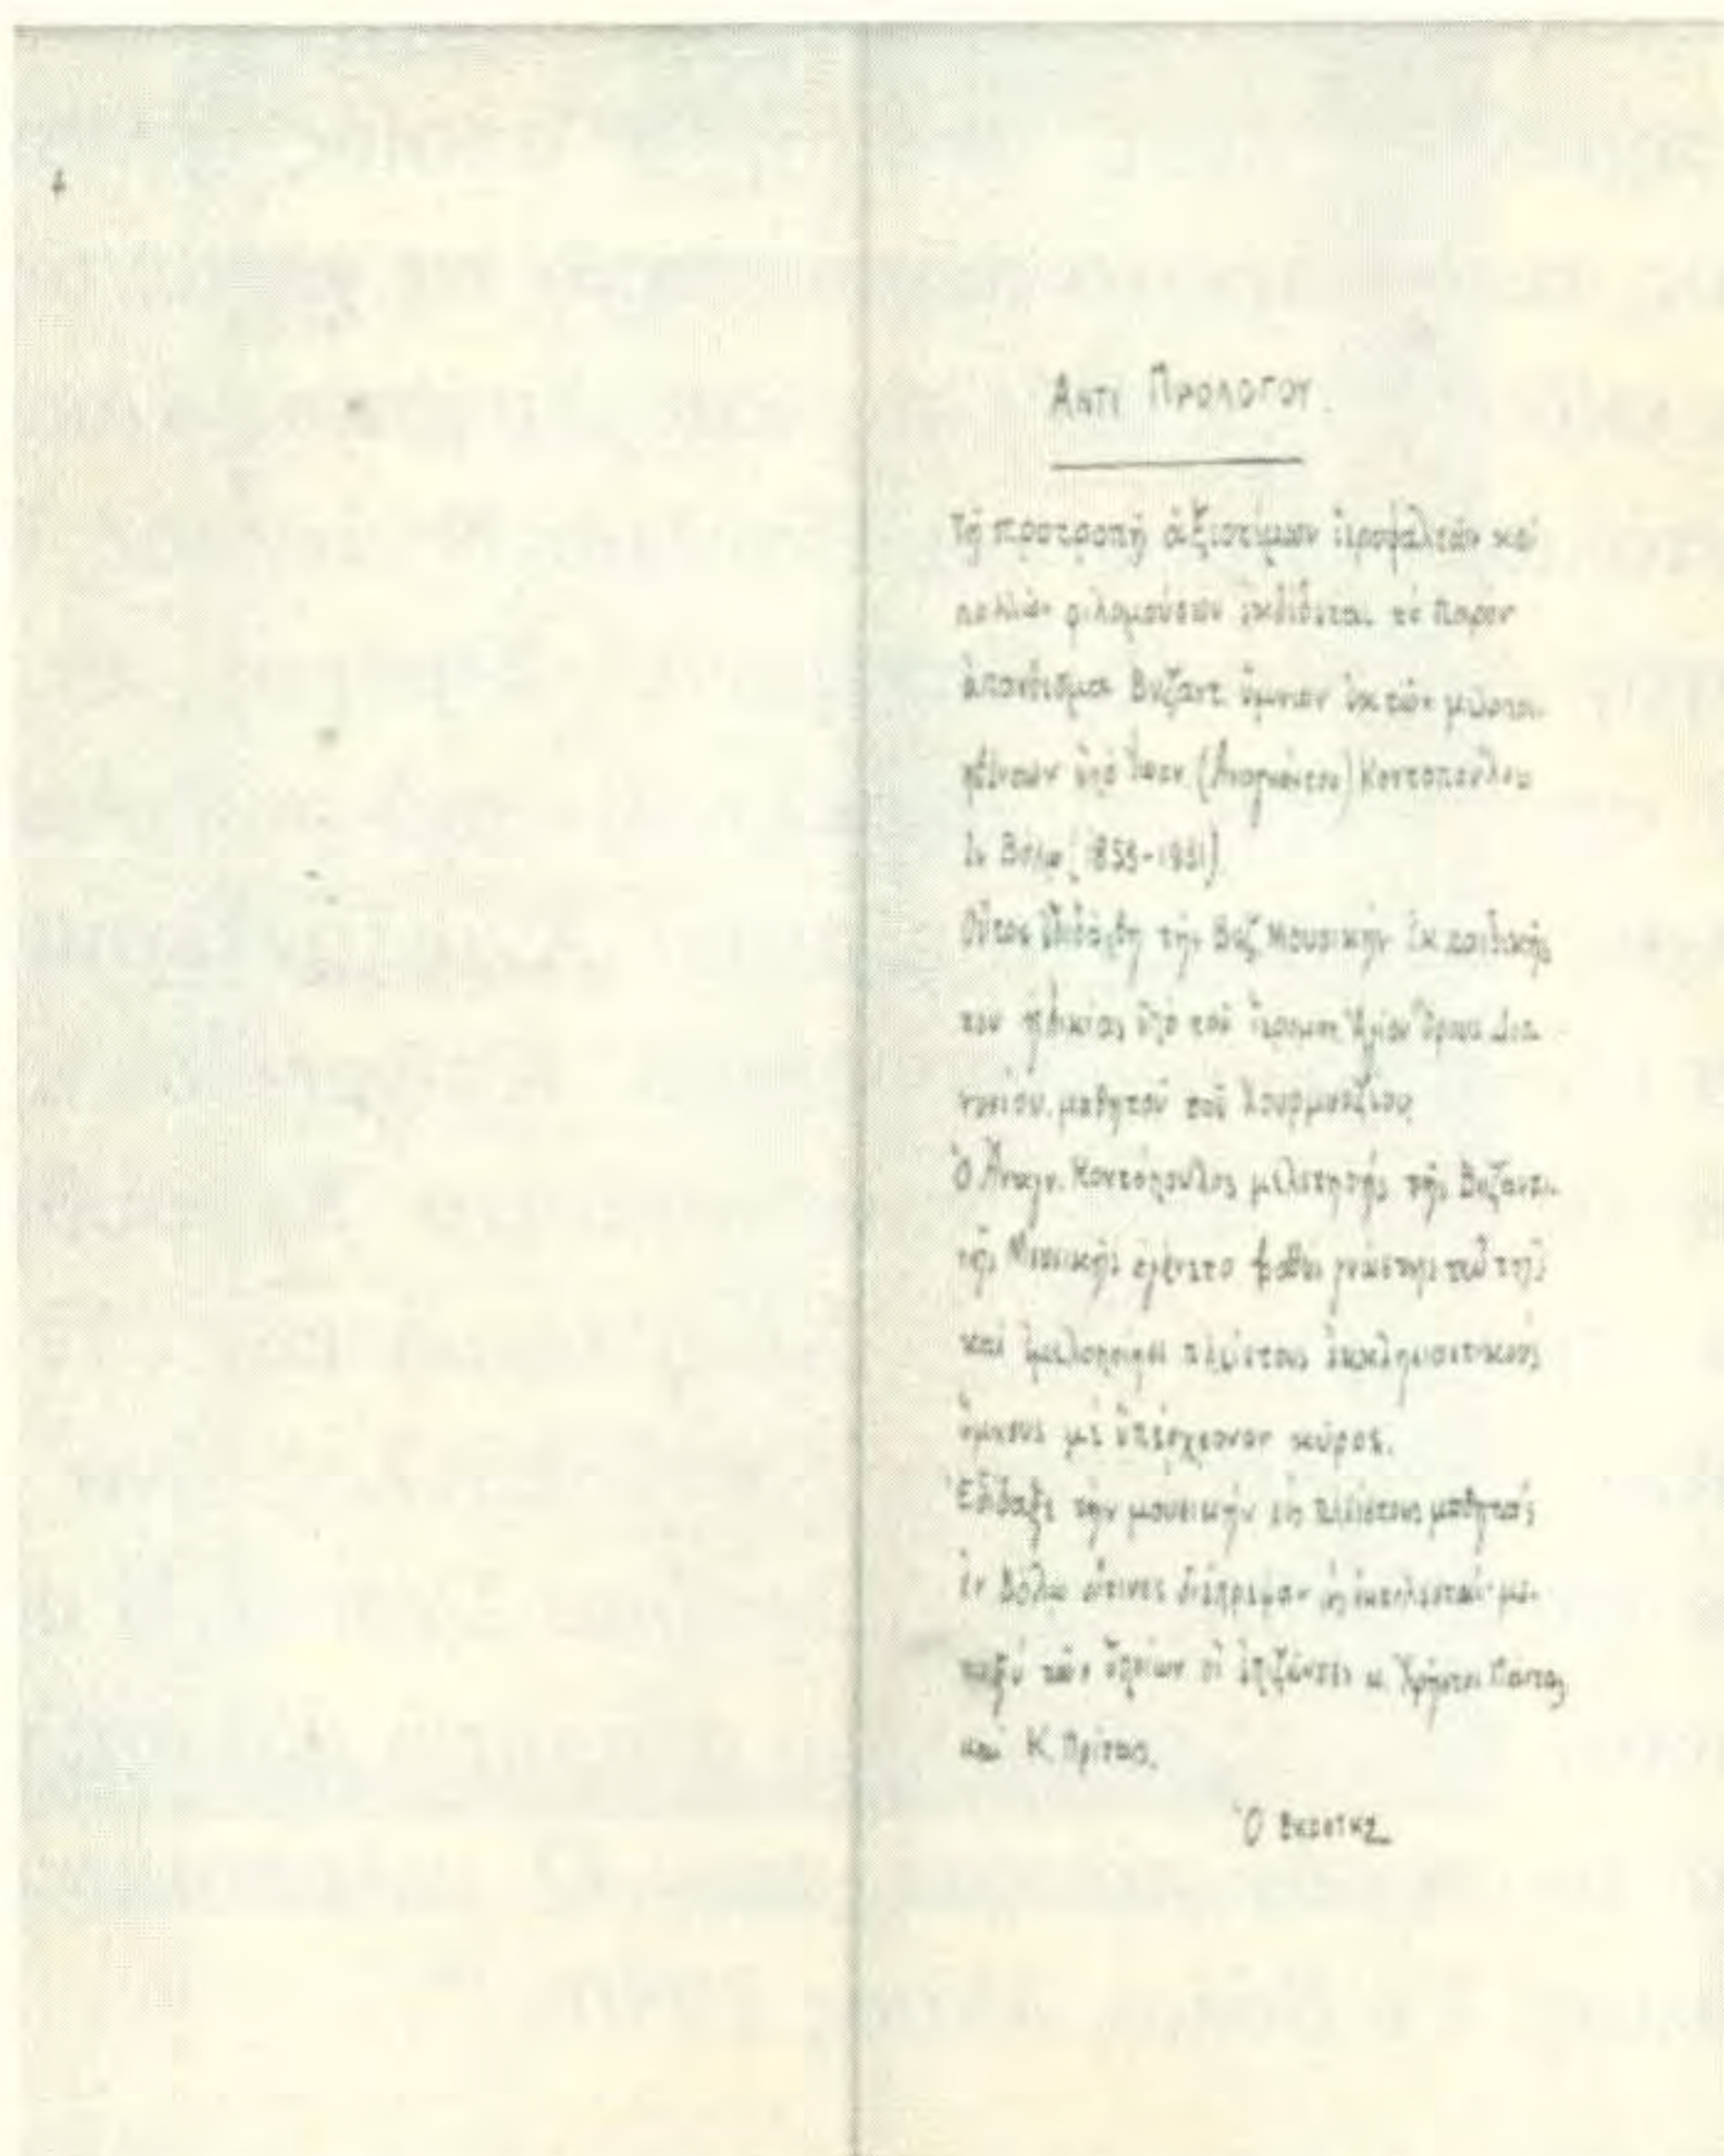 ΑΝΤΙ ΠΡΟΛΟΓΟΥ.
Τῇ προτροπῇ ἀξιοτίμων ἱεροψαλτῶν καί
πολλῶν φιλομούσων ἐκδίδεται τό παρόν
ἀπάνθισμα Βυζαντ. ὕμνων ἐκ τῶν μελοποι-
ηθέντων ὑπό Ἰωαν. (Ἀναγνώστου) Κοντοπούλου
ἐν Βόλῳ (1858-1931)
Οὗτος ἐδιδάχθη τήν Βυζ. Μουσικήν ἐκ παιδικῆς
του ἡλικίας ὑπό τοῦ Ἁγίου Ὄρους Διο-
νυσίου. μαθητοῦ τοῦ Χουρμουζίου
Ὁ Ἀναγν. Κοντόπουλος μελετητής τῆς Βυζαντι-
νῆς Μουσικῆς ἐγένετο βαθύς γνώστης
καί ἐμελοποίησε πλείστους ἐκκλησιαστικούς
ὕμνους μέ κῦρος.
Ἐδίδαξε τήν μουσικήν εἰς πλείστους μαθητάς
ἐν Βόλῳ οἵτινες διέπρεψαν ὡς ἐκτελεσταί με-
ταξύ τῶν ὁποίων οἱ ἐπιζῶντες κ. Χρῆστος Πάντας
καί Κ. Πρίτας.
Ὁ ΕΚΔΟΤΗΣ